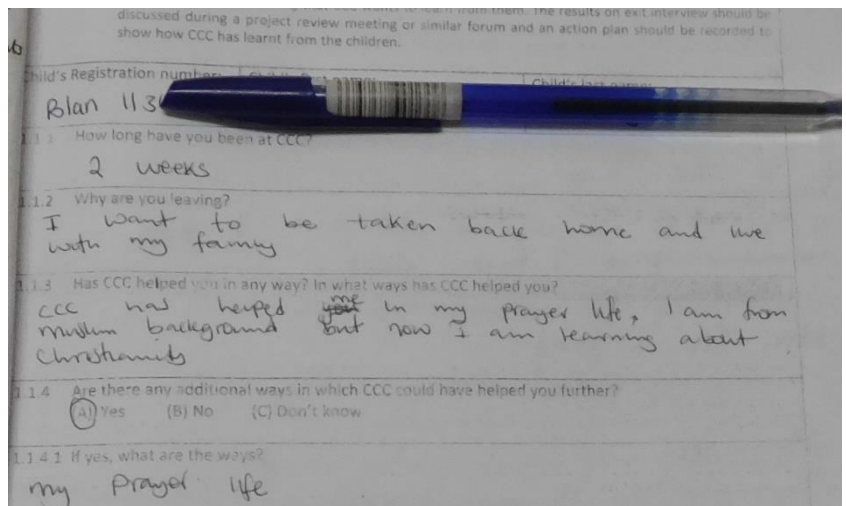 discussed during a project review meeting or similar forum and an action plan should be recorded to
show how CCC has learnt from the children.
Child's Registration number
Blan 113
1.1.1 How long have you been at CCC?
2 weeks
1.1.2 Why are you leaving?
I want to be taken back home and live
with my family
1.1.3 Has CCC helped you in any way? In what ways has CCC helped you?
CCC has helped me in my prayer life, I am from
muslim background but now I am learning about
Christianity
1.1.4 Are there any additional ways in which CCC could have helped you further?
(A) Yes (B) No (C) Don't know
1.1.4 1 If yes, what are the ways?
my prayer life